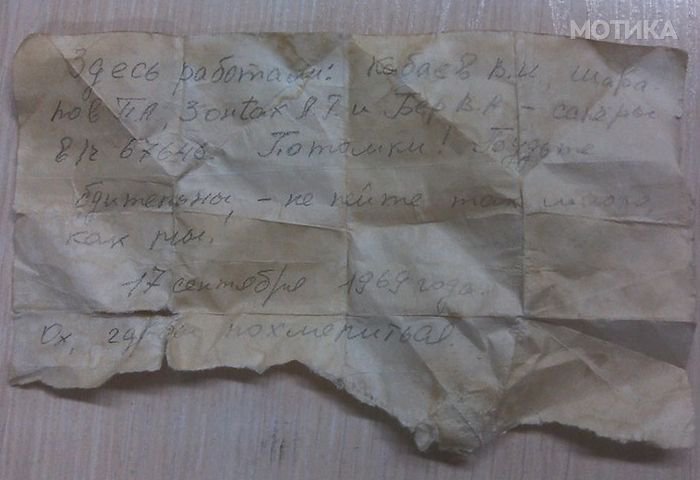 МОТИКА
Здесь работали: Кобаев В.И, Шара-
пов П.А, Зонтах А.Т. и Бер В.А - сапёры
в/ч 67646. Потомки! Будьте
бдительны, - не пейте так много,
как мы.
17 сентября 1969 года.
Ох, где бы похмелиться.